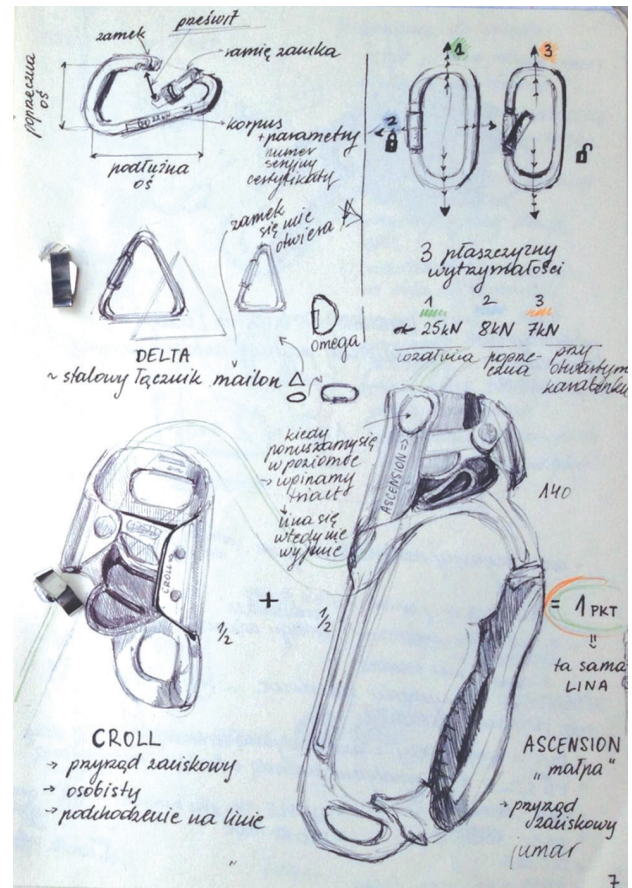 prześwit
zamek
ramię zamka
poprzeczna
oś
korpus
+parametry
numer
seryjny
certyfikaty
podłużna
oś
1
3
2
3 płaszczyzny
wytrzymałości
1 2 3
25kN 8kN 7kN
poprze-
czna
przy
otwartym
karabinku
zamek
się nie
otwiera
omega
DELTA
~ stalowy łącznik mailon
kiedy
poruszamy się
w poziomie
→ wpinamy
lina się
wtedy nie
wypnie
ASCENSION →
140
CROLL
1/2
+
1/2
= 1 PKT
=
ta sama
LINA
CROLL
→ przyrząd zaciskowy
→ osobisty
→ podchodzenie na linie
ASCENSION
„małpa”
→ przyrząd
zaciskowy
jumar
7